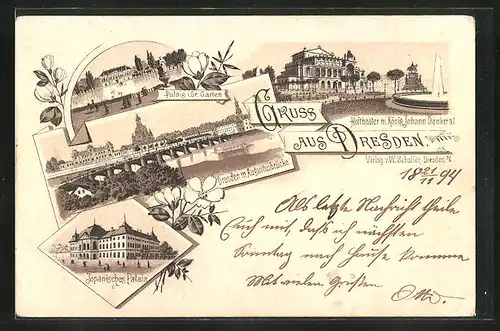 Palais i. Gr. Garten
Hoftheater m. König Johann Denkmal
Gruss
aus Dresden.
Verlag v. W. Schaller, Dresden, N.
Dresden m. Augustusbrücke
Japanisches Palais
18 21/11 94
Als letzte Nachricht theile
Euch mit, dass ich nächsten
Sonntag nach Hause komme
Mit vielen Grüßen
Otto.